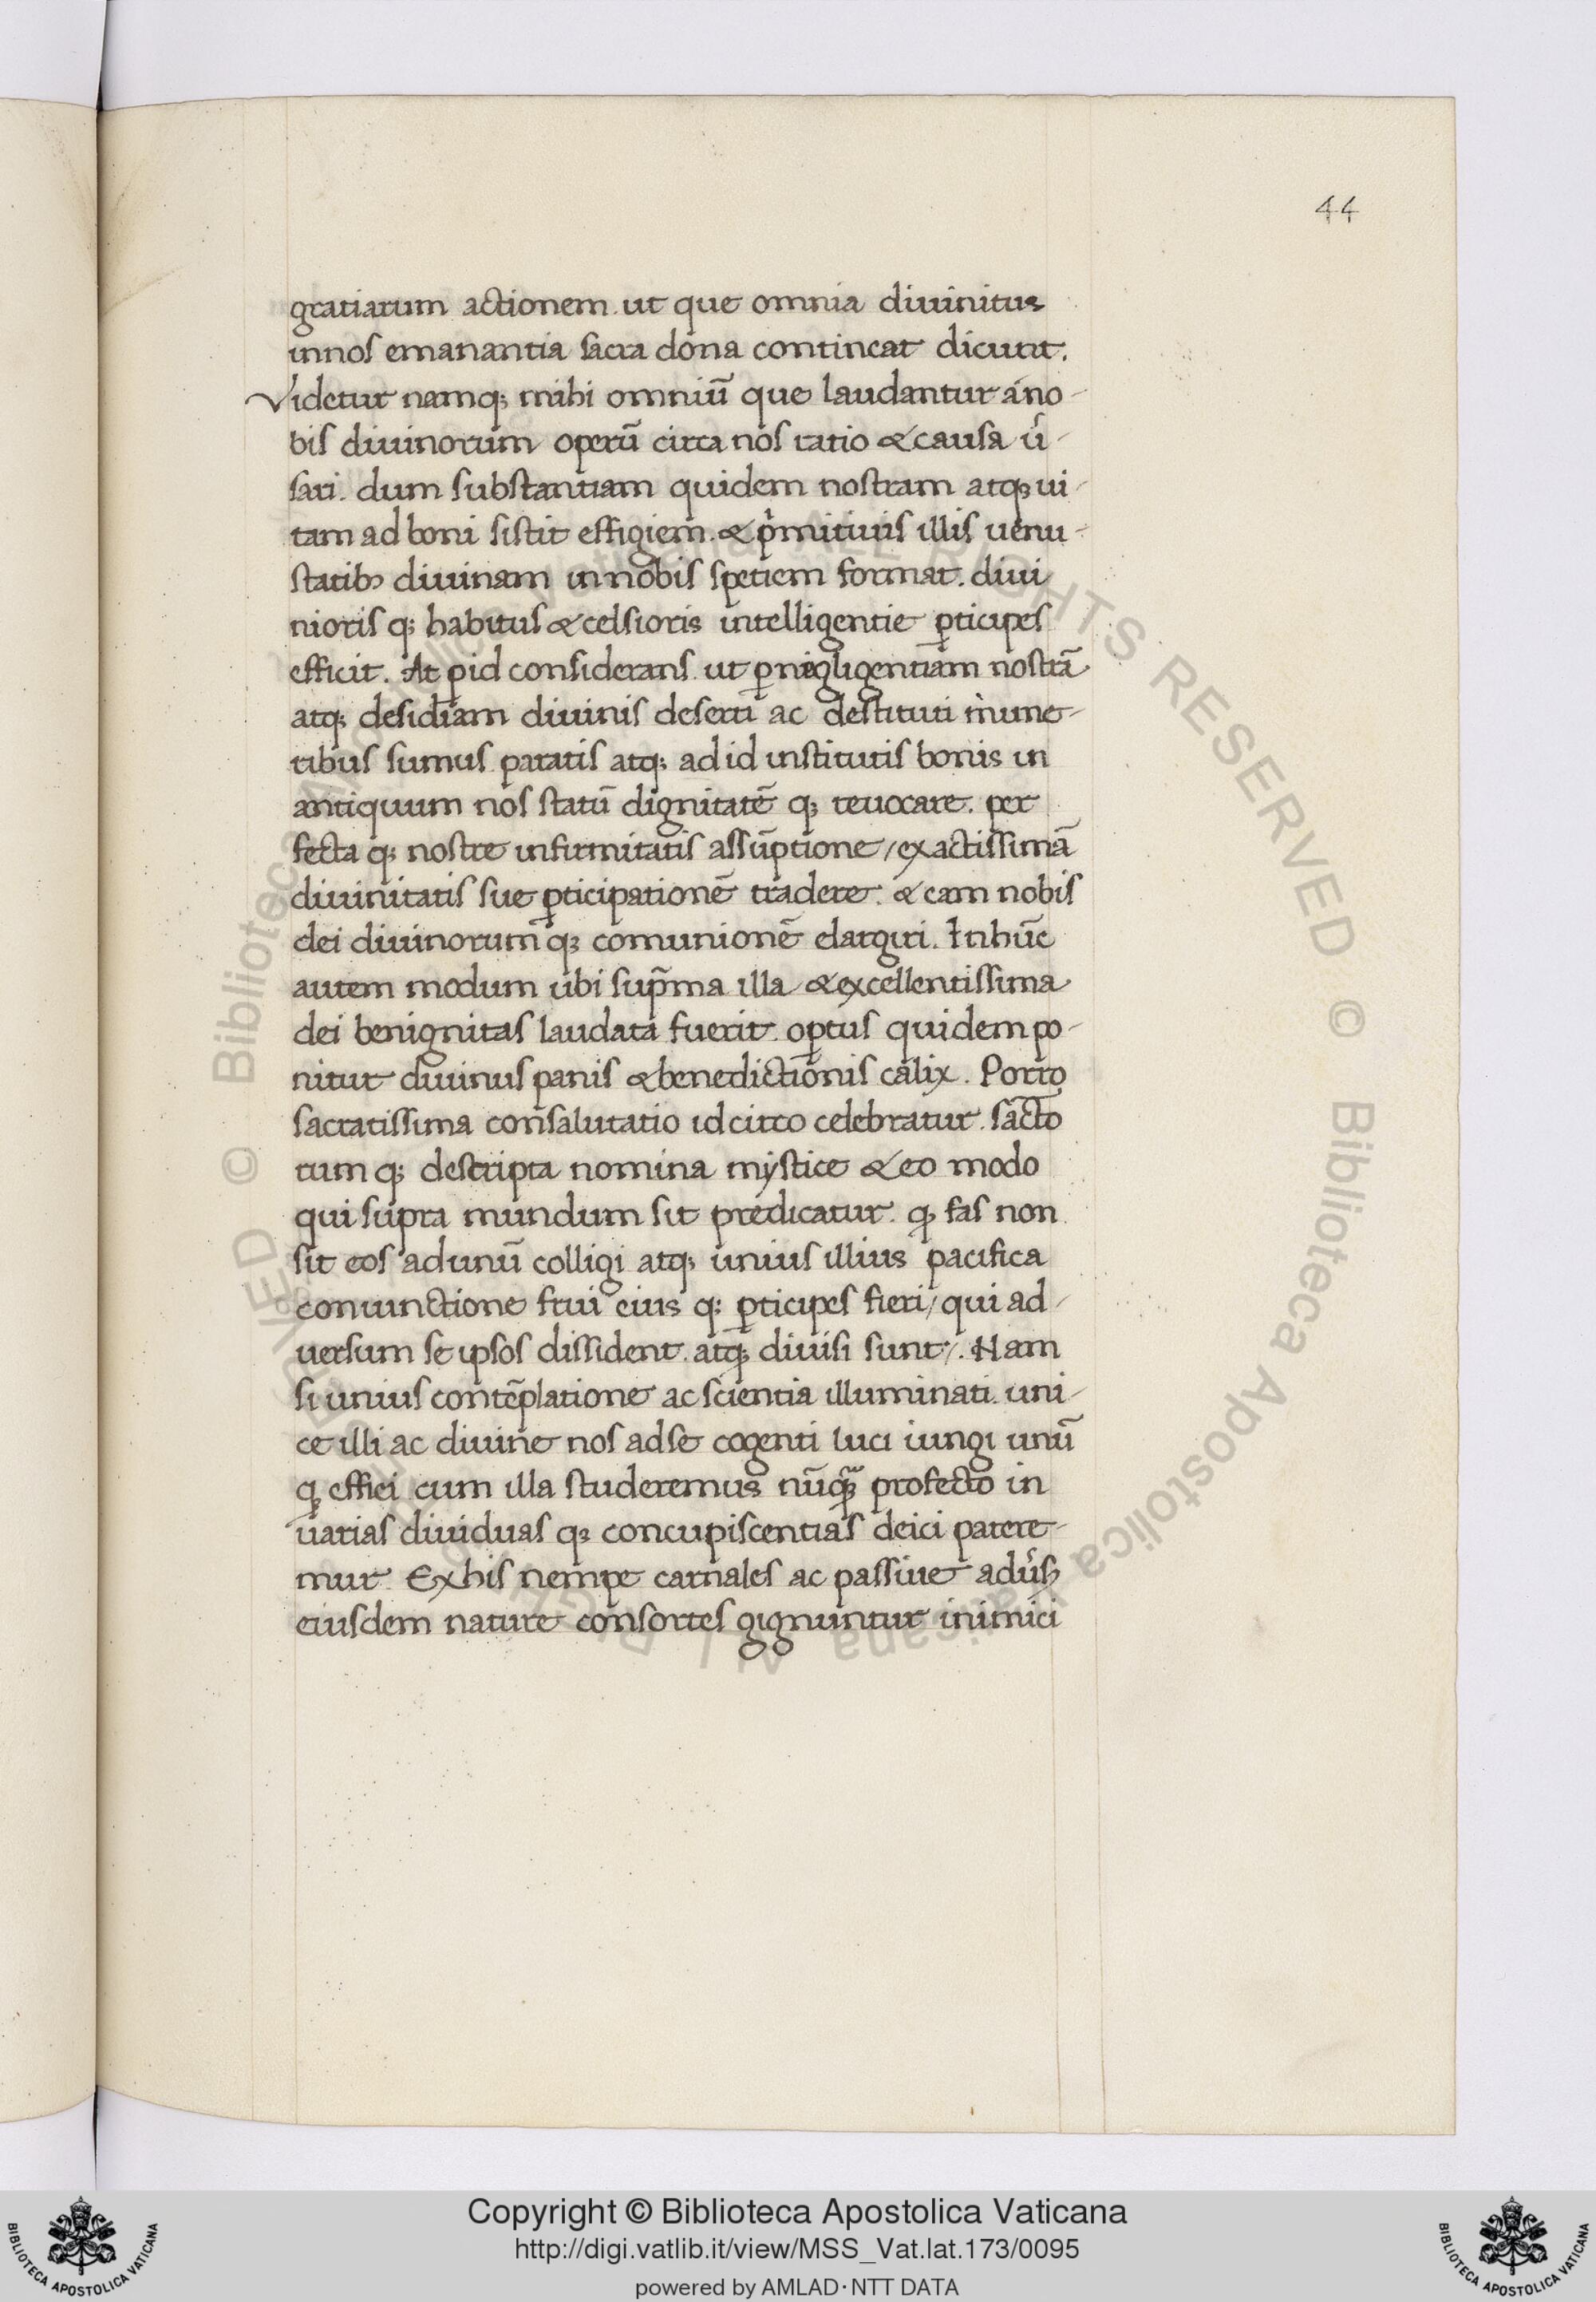 44
gratiarum actionem. ut que omnia diuinitus
innos emanantia sacra dona contineat dicunt.
Videtur namq; mihi omniū que laudantur áno-
bis diuinorum operū circa nos ratio & causa uˀ-
sari. dum substantiam quidem nostram atq; ui-
tam ad boni sistit effigiem. & pͥmitiuis illis uenu-
statibꝰ diuinam innobis spetiem format. diui
nioris q; habitus & celsioris intelligentie ꝑticipes
efficit. At ꝑid considerans. ut ꝑ negligentiam nostrā
atq; desidiam diuinis deserti ac destituti mune-
ribus sumus. paratis atq; ad id institutis bonis in
antiquum nos statū dignitatē q; reuocare. per
fecta q; nostre infirmitatis assūptione / exactissimā
diuinitatis sue ꝑticipationē tradere. & eam nobis
dei diuinorum q; comunionē elargiri. Inhūc
autem modum ubi sup̄ma illa & excellentissima
dei benignitas laudata fuerit. oꝑtus quidem po-
nitur diuinus panis & benedictionis calix. Porro
sacratissima consalutatio idcirco celebratur. sācto
rum q; descripta nomina mystice & eo modo
qui supra mundum sit predicatur. ꝙ fas non
sit eos ad unū colligi atq; unius illius pacifica
coniunctione frui eius q; ꝑticipes fieri / qui ad-
uersum se ipsos dissident. atq; diuisi sunt /. Nam
si unius contēplatione ac scientia illuminati. uni-
ce illi ac diuine nos adse cogenti luci iungi unū
q; effici cum illa studeremus nūꝙᷓ profecto in
uarias diuiduas q; concupiscentias deici patere-
mur. Exhis nempe carnales ac passiue aduˀsꝰ
eiusdem nature consortes gignuntur inimici
© Biblioteca Apostolica Vaticana ALL RIGHTS RESERVED © Biblioteca Apostolica Vaticana ALL RIGHTS RESERVED
Copyright © Biblioteca Apostolica Vaticana
http://digi.vatlib.it/view/MSS_Vat.lat.173/0095
powered by AMLAD·NTT DATA
BIBLIOTECA APOSTOLICA VATICANA
BIBLIOTECA APOSTOLICA VATICANA